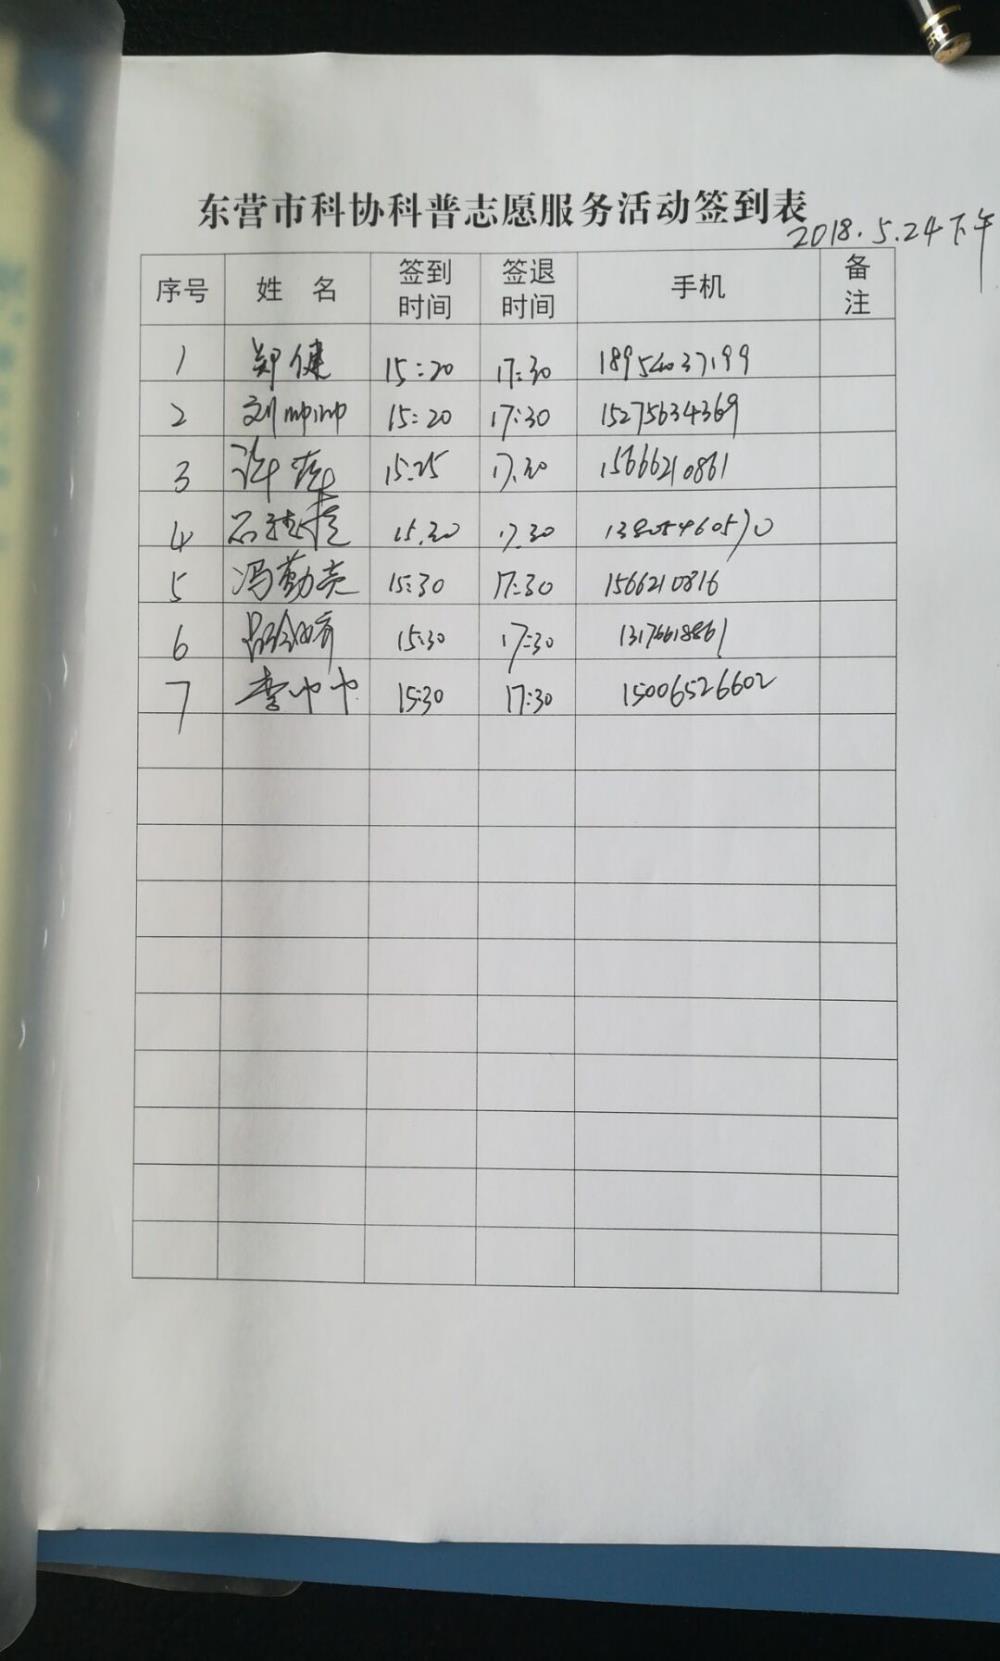 东营市科协科普志愿服务活动签到表
2018.5.24下午
序号 姓 名 签到时间 签退时间 手机 备注
1 郑健 15:20 17:30 18954037199
2 刘帅帅 15:20 17:30 15275634369
3 许 15:25 17:30 15666210861
4 石 15:30 17:30
5 冯勤亮 15:30 17:30 1566210816
6 15:30 17:30 13176618861
7 李巾巾 15:30 17:30 15006526602